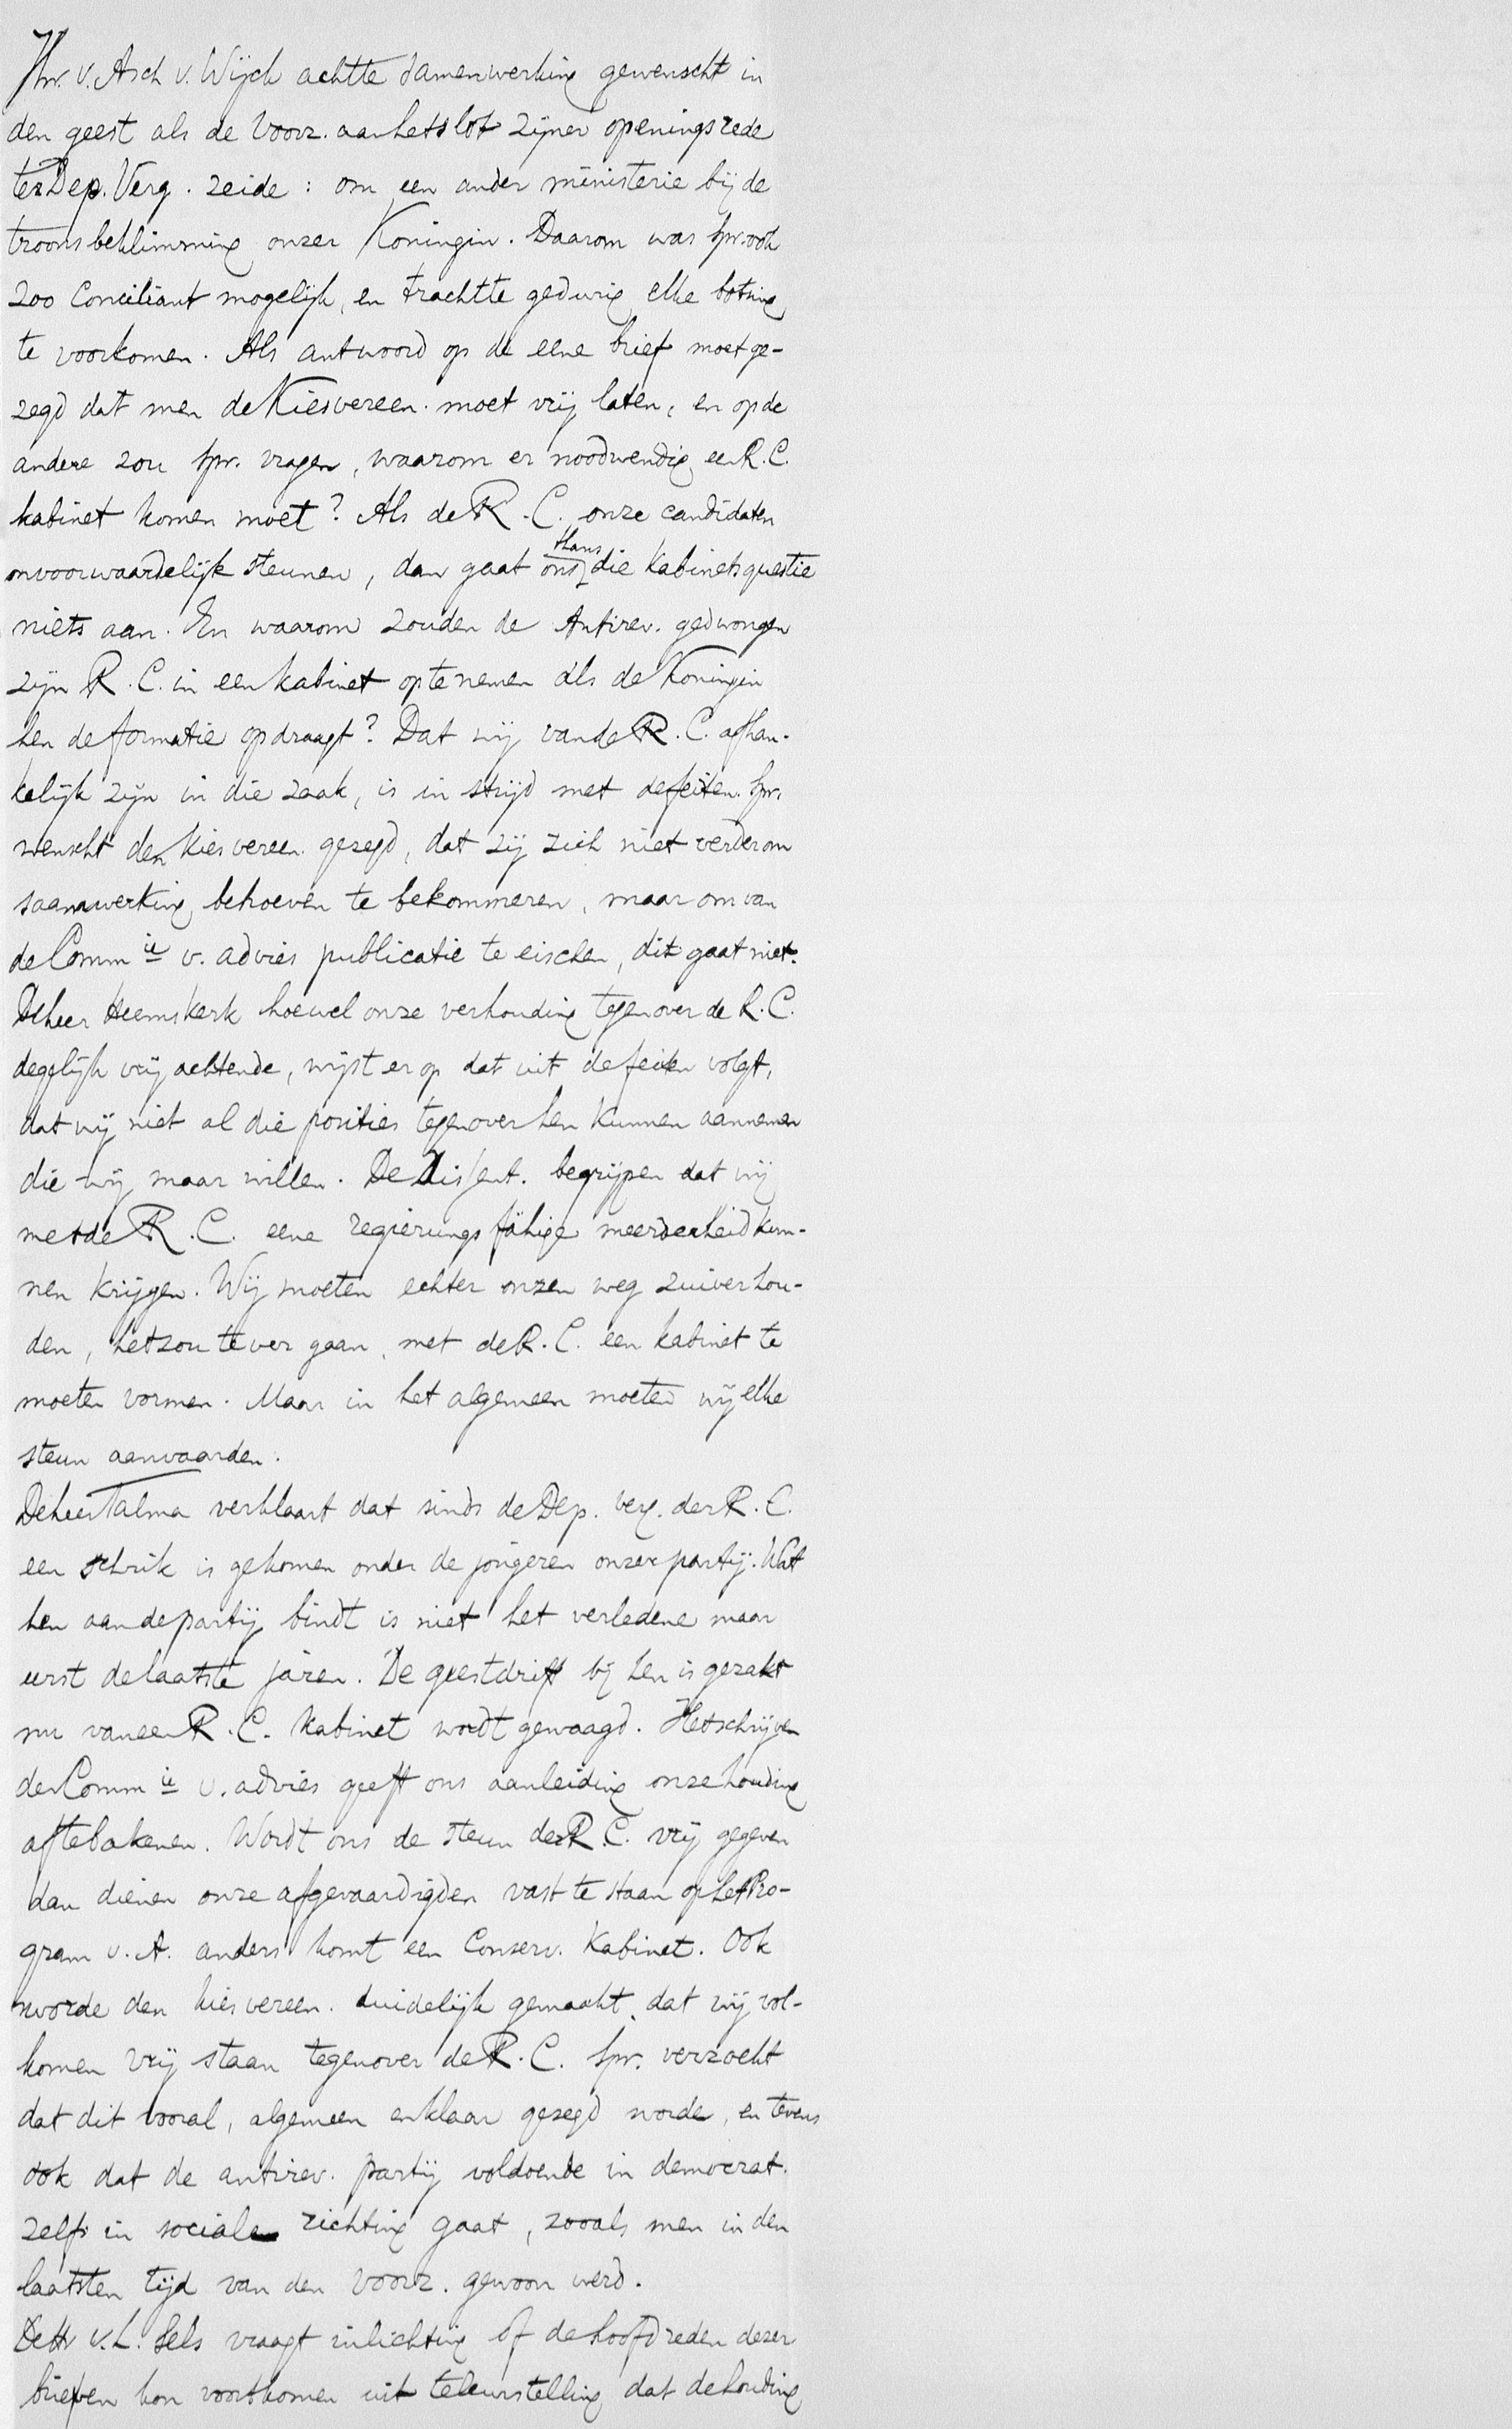 Jhr. v. Asch v. Wijck achtte samenwerking gewenscht in
den geest als de Voorz. aan het slot zijner openingsrede
ter Dep. Verg. zeide: om een ander ministerie bij de
troonsbeklimming onzer Koningin. Daarom was spr. ook
zoo conciliant mogelijk, en trachtte gedurig elke botsing
te voorkomen. Als antwoord op de eene brief moet ge-
zegd dat men de Kiesvereen. moet vrij laten, en op de
andere zou spr. vragen, waarom er noodwendig een R.C.
kabinet komen moet? Als de R.C. onze candidaten
onvoorwaardelijk steunen, dan gaat ons thans die kabinetsquestie
niets aan. En waarom zouden de Antirev. gedwongen
zijn R.C. in een kabinet op te nemen als de Koningin
hen de formatie opdraagt? Dat wij van de R.C. afhan-
kelijk zijn in die zaak, is in strijd met de feiten. Spr.
wenscht den kiesvereen. gezegd, dat zij zich niet verder om
saamwerking behoeven te bekommeren, maar om van
de Comm ie v. advies publicatie te eischen, dit gaat niet.
De heer Heemskerk hoewel onze verhouding tegenover de R.C.
degelijk vrij achtende, wijst er op dat uit de feiten volgt,
dat wij niet al die posities tegenover hen kunnen aannemen
die wij maar willen. De Dissent. begrijpen dat wij
met de R.C. eene regierungsfähige meerderheid kun-
nen krijgen. Wij moeten echter onzen weg zuiver hou-
den, het zou te ver gaan, met de R.C. een kabinet te
moeten vormen. Maar in het algemeen moeten wij elke
steun aanvaarden.
De heer Talma verklaart dat sinds de Dep. verg. der R.C.
een schrik is gekomen onder de jongeren onzer partij. Wat
hen aan de partij bindt is niet het verledene maar
eerst de laatste jaren. De geestdrift bij hen is gezakt
nu van een R.C. kabinet wordt gewaagd. Het schrijven
der Comm ie v. advies geeft ons aanleiding onze houding
af te bakenen. Wordt ons de steun der R.C. vrij gegeven
dan dienen onze afgevaardigden vast te staan op het Pro-
gram v. A. anders komt een Conserv. Kabinet. Ook
worde den kiesvereen. duidelijk gemaakt, dat wij vol-
komen vrij staan tegenover de R.C. Spr. verzoekt
dat dit vooral, algemeen en klaar gezegd worde, en tevens
ook dat de antirev. partij voldoende in democrat.
zelfs in sociale richting gaat, zooals men in den
laatsten tijd van den Voorz. gewoon werd.
De Hr v. L. Sels vraagt inlichting of de hoofdreden dezer
brieven kon voortkomen uit teleurstelling dat de houding